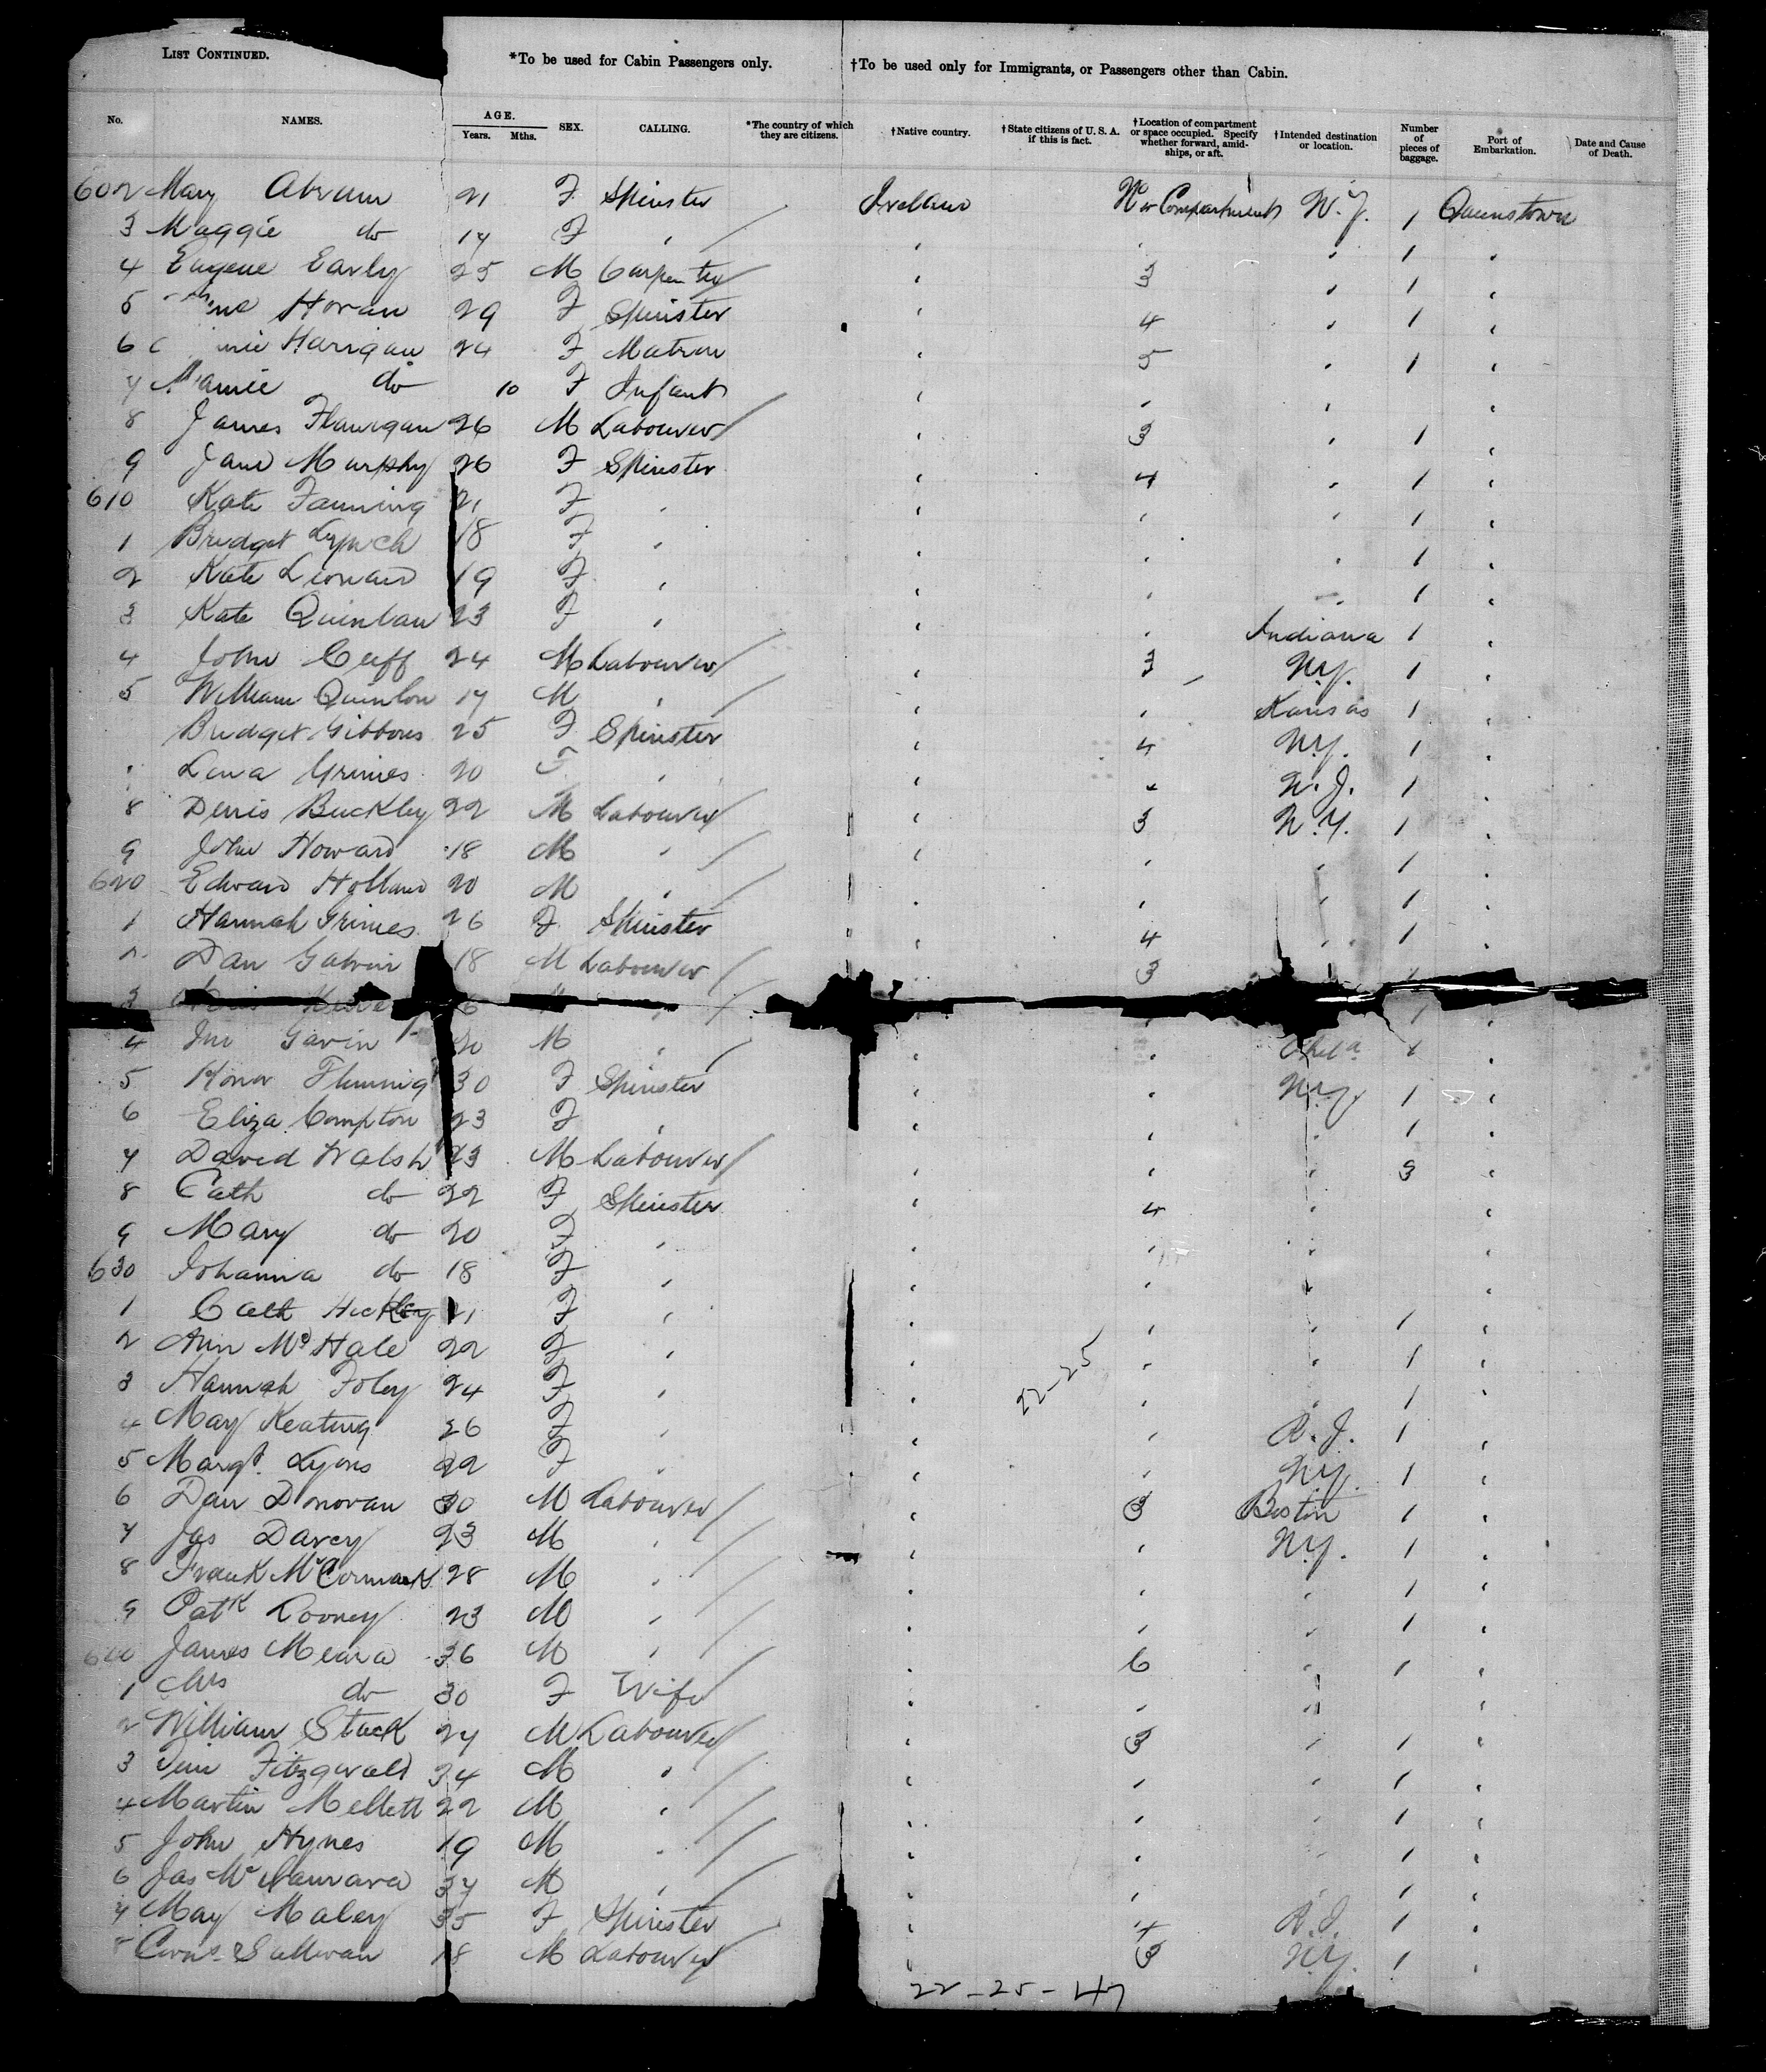 LIST CONTINUED.
*To be used for Cabin Passengers only.
†To be used only for Immigrants, or Passengers other than Cabin.
No. NAMES. AGE. Years. Mths. SEX. CALLING. *The country of which they are citizens. †Native country. †State citizens of U. S. A. if this is fact. †Location of compartment or space occupied. Specify whether forward, amidships, or aft. †Intended destination or location. Number of pieces of baggage. Port of Embarkation. Date and Cause of Death.
602 Mary 21 F Spinster Ireland No or Compartment N.Y. 1 Queenstown
3 Maggie do 17 F "
4 Eugene Early 25 M Carpenter " 3 " 1 "
5 Horan 29 F Spinster " 4 " 1 "
6 Harrigan 24 F Matron " 5 " 1 "
7 Mamie do 10 F Infant " " " "
8 James Flanigan 26 M Labourer " 3 " 1 "
9 Jane Murphy 26 F Spinster " 4 " 1 "
610 Kate Fanning 21 F " " " " 1 "
1 Bridget Lynch 18 F " " " " 1 "
2 Kate Leonard 19 F " " " " 1 "
3 Kate Quinlan 23 F " " " Indiana 1 "
4 John Cuff 24 M Labourer " 3 N.Y. 1 "
5 William Quinlon 17 M " " " Kansas 1 "
Bridget Gibbons 25 F Spinster " 4 N.Y. 1 "
Grimes 20 F " " " N.J. 1 "
8 Denis Buckley 22 M Labourer " 3 N.Y. 1 "
9 John Howard 18 M " " " " 1 "
620 Edward Holland 20 M " " " " 1 "
1 Hannah Grimes 26 F Spinster " 4 " 1 "
2 Dan Galvin 18 M Labourer " 3
3
4 Jno Gavin 20 M " " " "
5 Honor Fleming 30 F Spinster " " N.Y. 1 "
6 Eliza Compton 23 F " " " " 1 "
7 David Walsh 23 M Labourer " " " 3 "
8 Cath do 22 F Spinster " 4 " "
9 Mary do 20 F " " " " "
630 Johanna do 18 F " " " " "
1 Cath Hickey 21 F " " " " 1 "
2 Ann McHale 22 F " " " " 1 "
3 Hannah Foley 24 F " " 22-25 " " 1 "
4 Mary Keating 26 F " " " R.I. 1 "
5 Margt. Lyons 22 F " " " N.Y. 1 "
6 Dan Donovan 30 M Labourer " 3 Boston 1 "
7 Jas Darcy 23 M " " " N.Y. 1 "
8 Frank McCormack 28 M " " " " 1 "
9 Patk Looney 23 M " " " " 1 "
640 James Meara 36 M " " 6 " 1 "
1 Mrs do 30 F Wife " " " "
2 William Stack 27 M Labourer " 3 " 1 "
3 Fitzgerald 34 M " " " " 1 "
4 Martin Mellett 22 M " " " " 1 "
5 John Hynes 19 M " " " " 1 "
6 Jas McNamara 37 M " " " " 1 "
7 May Maley 35 F Spinster " 4 R.I. 1 "
8 Corns Sullivan 18 M Labourer " 3 N.Y. 1 "
22-25-47